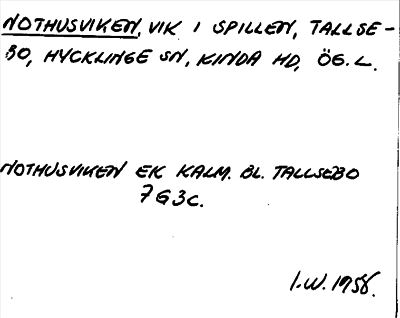 NOTHUSVIKEN, VIK I SPILLEN, TALLSE-
BO, HYCKLINGE SN, KINDA HD, ÖG. L.
NOTHUSVIKEN EK KALM. BL. TALLSEBO
7G3C.
I.W. 1958.